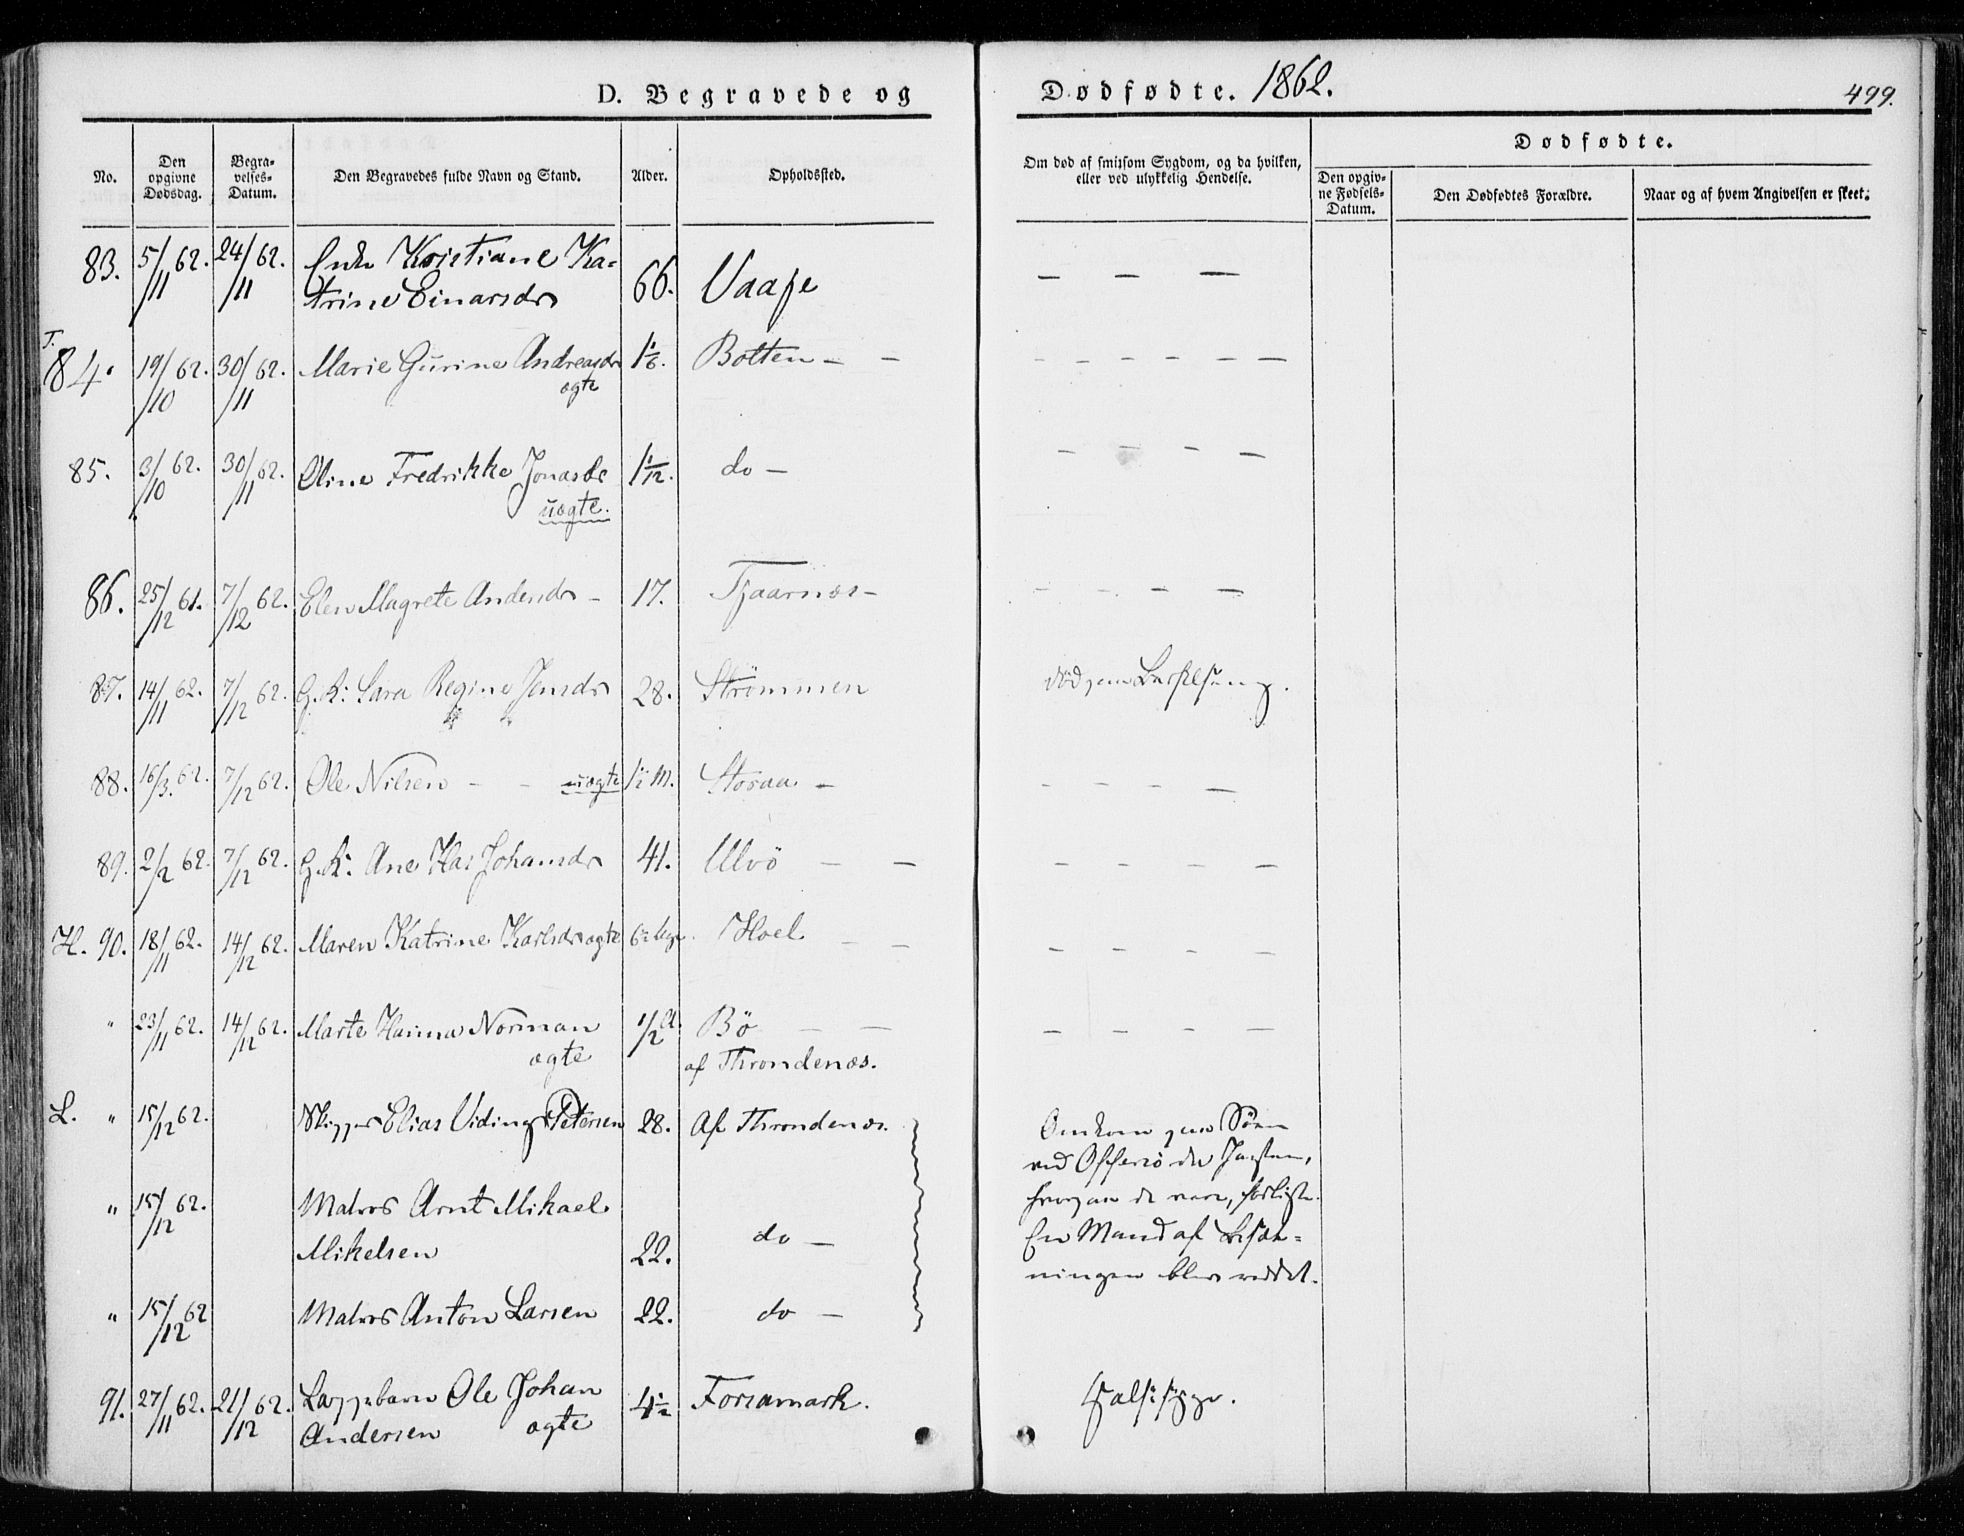 D. Begravede og Dødfødte. 1862. 499.
No. Den opgivne Dødsdag. Begravelses-Datum. Den Begravedes fulde Navn og Stand. Alder. Opholdssted. Om død af smitsom Sygdom, og da hvilken, eller ved ulykkelig Hendelse. Dødfødte.
Den opgivne Fødsels-Datum. Den Dødfødtes Forældre. Naar og af hvem Angivelsen er skeet.
83. 5/11 62. 24/11 62. Enke Kristiane Ka-
trine Einarsdr 66. Vaage — — —
T. 84. 19/10 62. 30/11 62. Marie Gurine Andreasdr 1 1/6. Botten — — — — — — — —
ægte
85. 3/10 62. 30/11 62. Oline Fredrikke Jonasdr 1 1/12. do — — — — —
uægte.
86. 25/12 61. 7/12 62. Elen Magrete Andersdr — 17. Tjaarnæs — — — — —
87. 14/11 62. 7/12 62. G.K: Sara Regine Jensdr 28. Strömmen død paa Barselseng.
88. 16/3. 62. 7/12 62. Ole Nilsen — — uægte 1/2 M. Storaa — — — — —
89. 2/2 62. 7/12 62. G.K: Ane Johansdr 41. Ulvö — — — — — —
H. 90. 18/11 62. 14/12 62. Maren Katrine Karlsdr ægte Hoel — — — — — —
" 23/11 62. 14/12 62. Marte Hanna Norman 1/2 A. Bö — — — — — —
ægte af Throndenæs.
L. " 15/12 62. Skipper Elias Viding Petersen 28. Af Throndenæs. Omkom paa Söen
ved Offersö da Jagten,
" 15/12 62. Matros Arnt Mikael hvorpaa de vare, forliste.
Mikelsen 22. do — En Mand af Besæt-
ningen blev reddet.
" 15/12 62 Matros Anton Larsen 22. do —
91. 27/11 62. 21/12 62. Lappebarn Ole Johan 4 1/2 Forsamark. Halssyge.
Andersen ægte